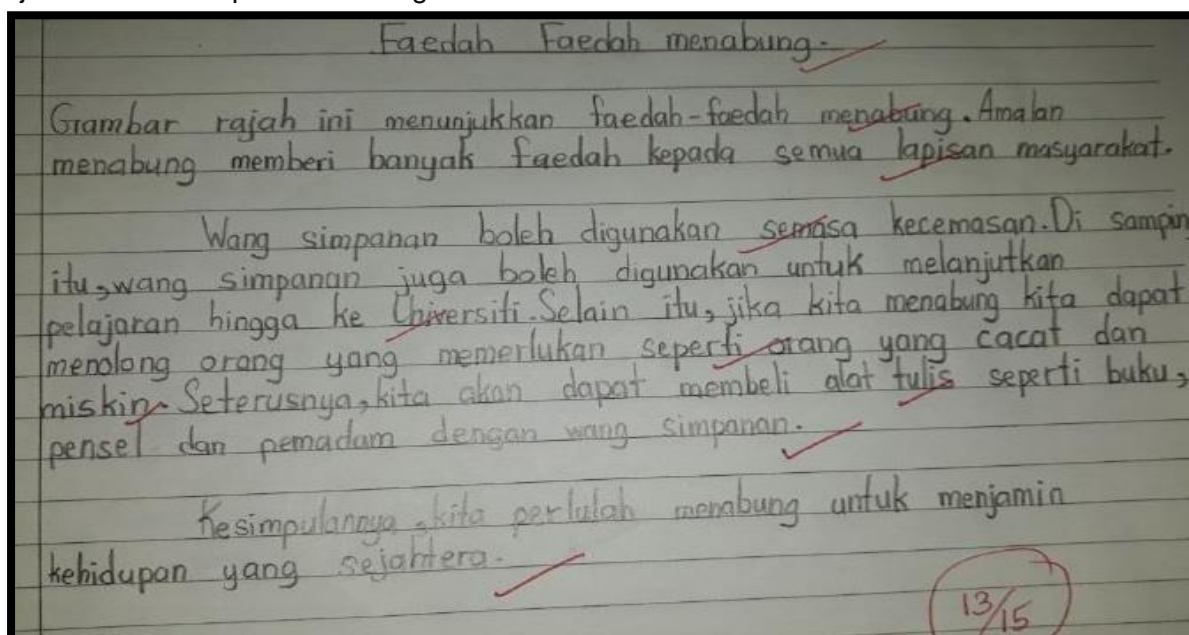 Faedah Faedah menabung.
Gambar rajah ini menunjukkan faedah-faedah menabung. Amalan
menabung memberi banyak faedah kepada semua lapisan masyarakat.
Wang simpanan boleh digunakan semasa kecemasan. Di samping
itu, wang simpanan juga boleh digunakan untuk melanjutkan
pelajaran hingga ke Universiti. Selain itu, jika kita menabung kita dapat
menolong orang yang memerlukan seperti orang yang cacat dan
miskin. Seterusnya, kita akan dapat membeli alat tulis seperti buku,
pensel dan pemadam dengan wang simpanan.
Kesimpulannya, kita perlulah menabung untuk menjamin
kehidupan yang sejahtera.
13/15